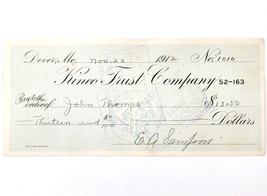 Dover, Me. Nov. 23 1912 No. 1010
Kineo Trust Company 52-163
Pay to the
order of John Thomps $13.50
Thirteen and 50 Dollars
E. A. Sampson